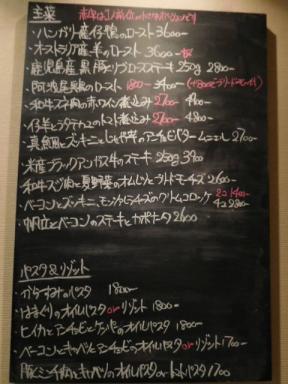 主菜
・ハンガリー産仔鴨のロースト3600-
・オーストラリア産羊のロースト 3600-
・鹿児島産黒豚 ロースステーキ250g 2800-
・阿波尾鶏のロースト 1800- 3400-
・和牛スネ肉の赤ワイン煮込み 2700- 4900-
・仔羊とラタトゥユのトマト煮込み 2700- 4800-
・真鯛とズッキーニとじゃが芋のアンチョビバタームニエル2700-
・米産ブラックアンガス牛のステーキ 250g 3900
・和牛スジ肉と夏野菜のオムレツとフリット チーズ2600-
・ベーコンとズッキーニ、モッツァレラチーズのクリームコロッケ 2コ1400- 4コ2800-
・帆立とベーコンのステーキとカポナータ 2600
パスタ&リゾット
・からすみのパスタ 1800-
・はまぐりのオイルパスタorリゾット 1800-
・ヒイカとアンチョビとケッパーのオイルパスタ 1800-
・ベーコンとキャベツとアンチョビのオイルパスタorリゾット1700-
・豚ミンチ肉とキャベツのオイルパスタorトマトパスタ1700